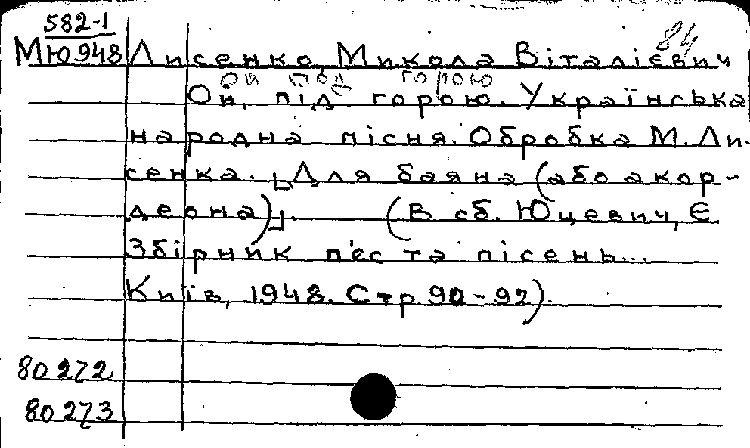 582-1
84
МЮ948 Лисенко, Микола Віталієвич
ой під горою
Ой, під горою. Українська
народна пісня. Обробка М. Ли-
сенка. [Для баяна (або акор-
деона)]. (В сб. Юцевич, Є
Збірник п'єс та пісень...
Київ, 1948. Стр 90-92).
80272
80273